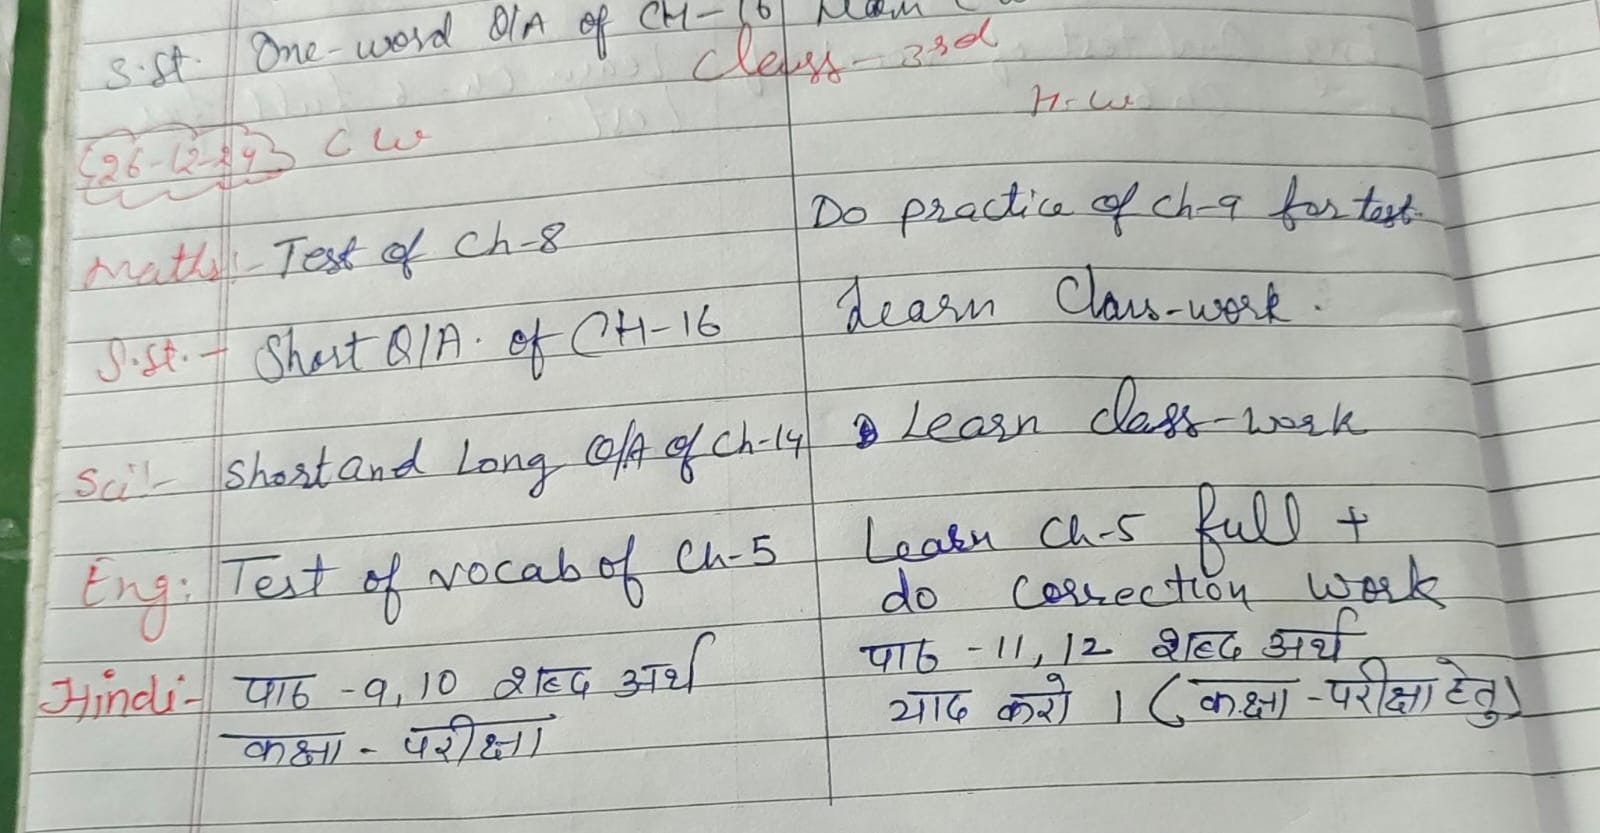 S.St. One-word Q/A of CH-16 Learn
Class - 3rd
26-12-24 C W H-W
Maths:- Test of Ch-8 Do practice of ch-9 for test.
S.St. - Short Q/A. of CH-16 Learn Class-work.
Sci:- Short and Long Q/A of Ch-14 Learn class-work
Eng: Test of vocab of Ch-5 Learn Ch-5 full +
do correction work
Hindi- पाठ -9, 10 शब्द अर्थ पाठ -11, 12 शब्द अर्थ
कक्षा - परीक्षा याद करो । (कक्षा -परीक्षा हेतु)